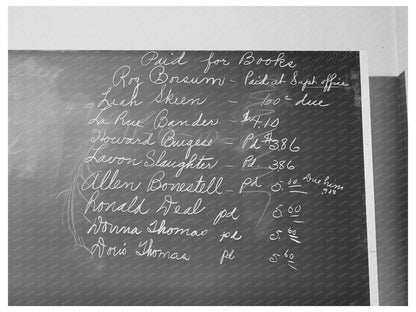 Paid for Books
Roy Borsum - Paid at Supt office
Leah Skeen - 60¢ due
La Rue Bander - $4.10
Howard Burgess - Pd $3.86
Lavon Slaughter - Pd 3.86
Allen Bonestell - pd 5.00 Due him
Ronald Deal pd 5.60
Donna Thomas pd 5.60
Doris Thomas pd 5.60